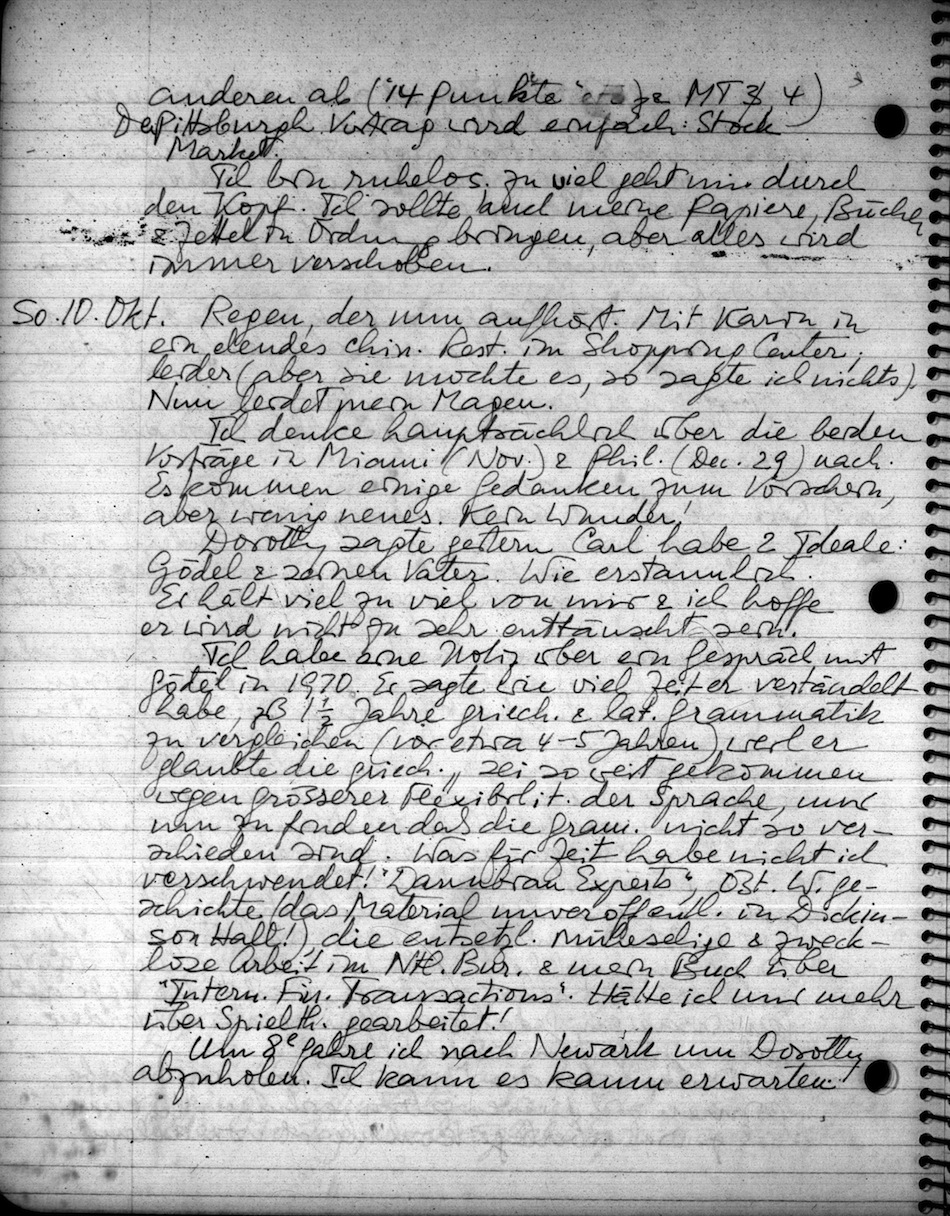 anderen ab (14 Punkte & MT 3, 4)
Der Pittsburgh Vortrag wird einfach: Stock
Market.
Ich bin ruhelos. Zu viel geht mir durch
den Kopf. Ich sollte auch meine Papiere, Bücher
& Zettel in Ordnung bringen, aber alles wird
immer verschoben.
So. 10. Okt. Regen, der nun aufhört. Mit Karin in
ein elendes chin. Rest. im Shopping Center,
leider (aber sie mochte es, so sagte ich nichts).
Nun leidet mein Magen.
Ich denke hauptsächlich über die beiden
Vorträge in Miami (Nov.) & Phil. (Dec. 29) nach.
Es kommen einige Gedanken zum Vorschein,
aber wenig neues. Kein Wunder!
Dorothy sagte gestern Carl habe 2 Ideale:
Gödel & seinen Vater. Wie erstaunlich.
Er hält viel zu viel von mir & ich hoffe
er wird nicht zu sehr enttäuscht sein.
Ich habe eine Notiz über ein Gespräch mit
Gödel in 1970. Er sagte wie viel Zeit er vertändelt
habe, zB 1½ Jahre griech. & lat. Grammatik
zu vergleichen (vor etwa 4-5 Jahren) weil er
glaubte die griech. „ sei so weit gekommen
wegen grösserer Flexibilit. der Sprache, nur
um zu finden daß die Gram. nicht so ver-
schieden sind. Was für Zeit habe nicht ich
verschwendet! "Danubian Experts", Öst. W. ge-
schichte (das Material unveröffentl. in Dickin-
son Hall!) die entsetzl. mühselige & zweck-
lose Arbeit im Ntl. Bur. & mein Buch über
"Intern. Fin. Transactions". Hätte ich nur mehr
über Spielth. gearbeitet!
Um 8e fahre ich nach Newark um Dorothy
abzuholen. Ich kann es kaum erwarten.